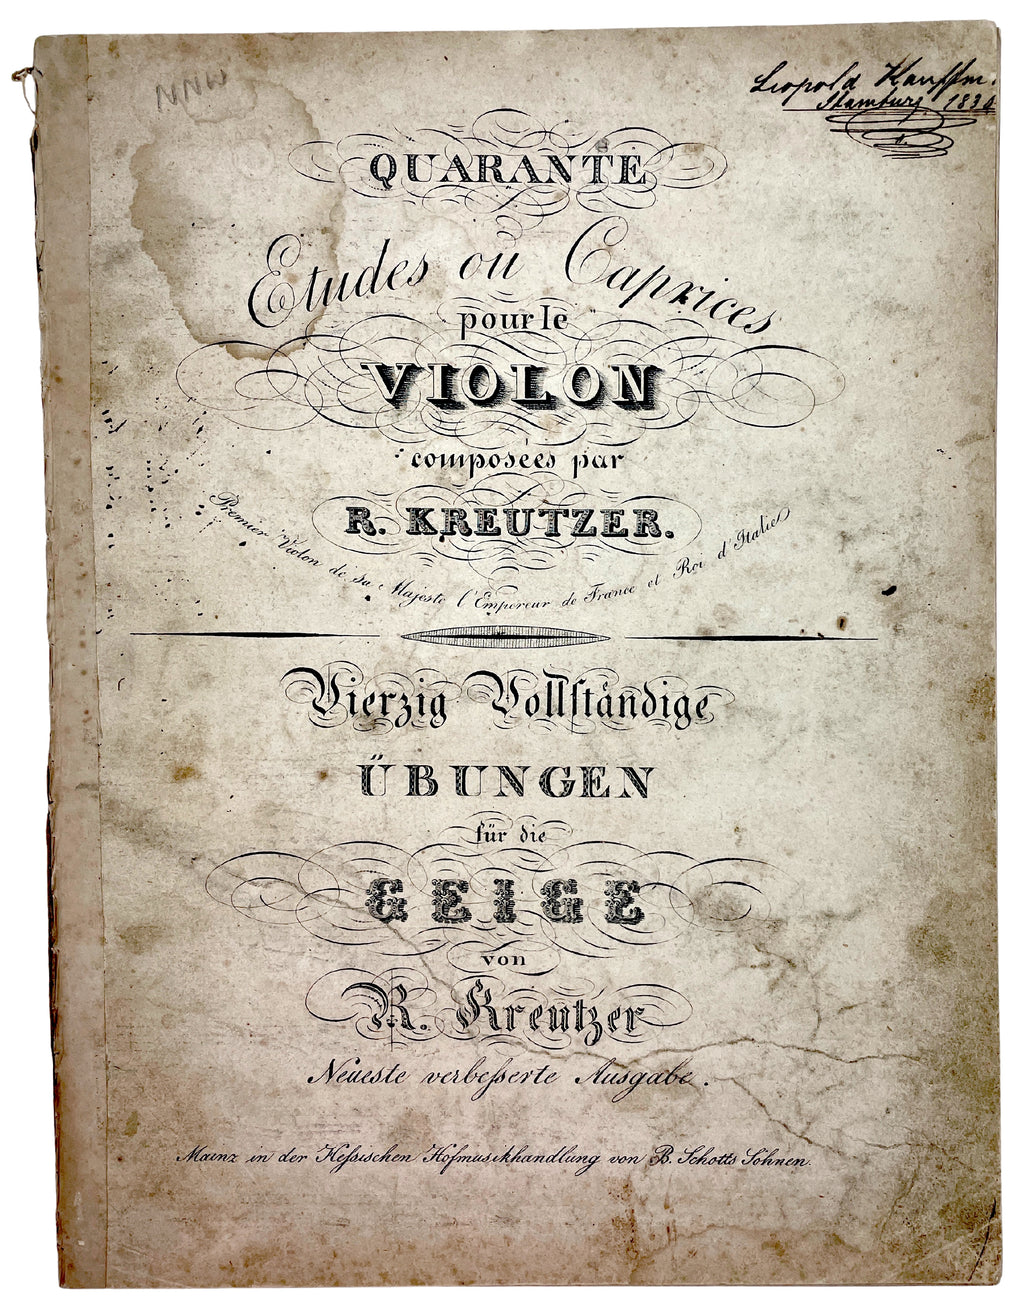 NNW
Leopold Kauffm.
Hamburg 1830
QUARANTE
Etudes ou Caprices
pour le
VIOLON
composées par
R. KREUTZER.
Premier Violon de Sa Majeste l'Empereur de France et Roi d'Italie
Vierzig Vollſtändige
ÜBUNGEN
für die
GEIGE
von
R. Kreutzer
Neueste verbeſserte Ausgabe.
Mainz in der Heſsischen Hofmusikhandlung von B. Schotts Söhnen.